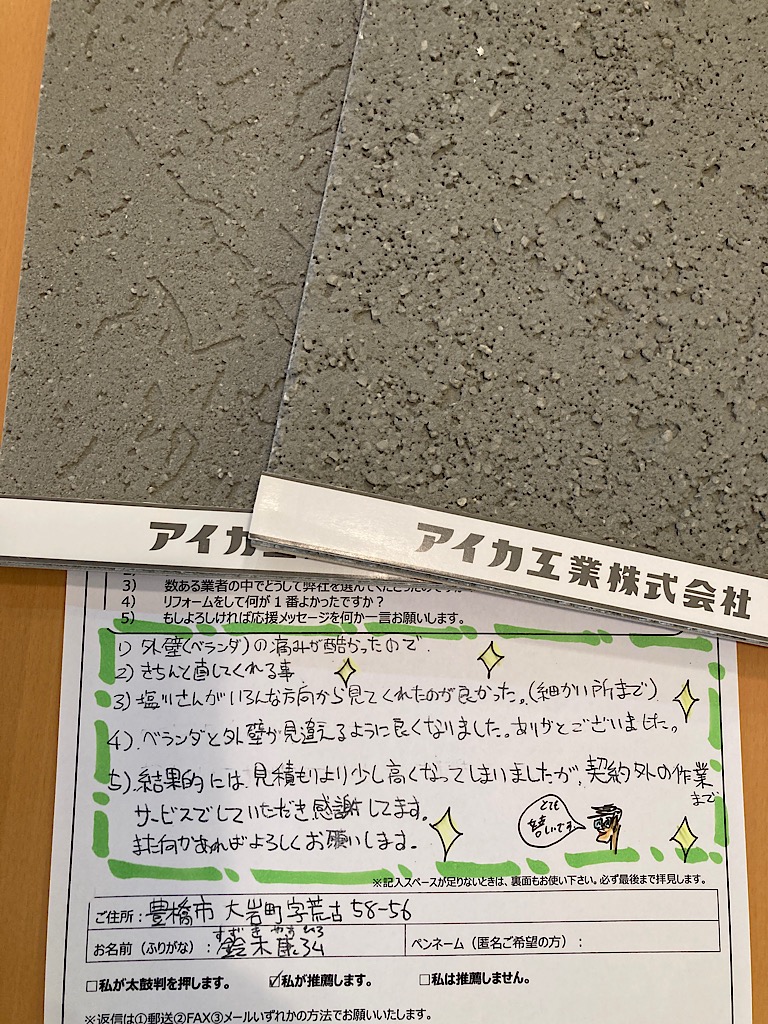 アイカ工
アイカ工業株式会社
3) 数ある業者の中でどうして弊社を選んでくださったのですか
4) リフォームをして何が1番よかったですか?
5) もしよろしければ応援メッセージを何か一言お願いします。
1) 外壁(ベランダ)の痛みが酷かったので.
2) きちんと直してくれる事
3) 塩川さんがいろんな方向から見てくれたのが良かった。(細かい所まで)
4). ベランダと外壁が見違えるように良くなりました。ありがとございました。
5). 結果的には、見積もりより少し高くなってしまいましたが、契約外の作業
まで
サービスでしていただき感謝してます。
また何かあればよろしくお願いします。
とても
嬉しいです
※記入スペースが足りないときは、裏面もお使い下さい。必ず最後まで拝見します。
ご住所:豊橋市 大岩町字荒古 58-56
すずき やすひろ
お名前(ふりがな):鈴木康弘
ペンネーム(匿名ご希望の方):
□私が太鼓判を押します。 ☑私が推薦します。 □私は推薦しません。
※返信は①郵送②FAX③メールいずれかの方法でお願いいたします。